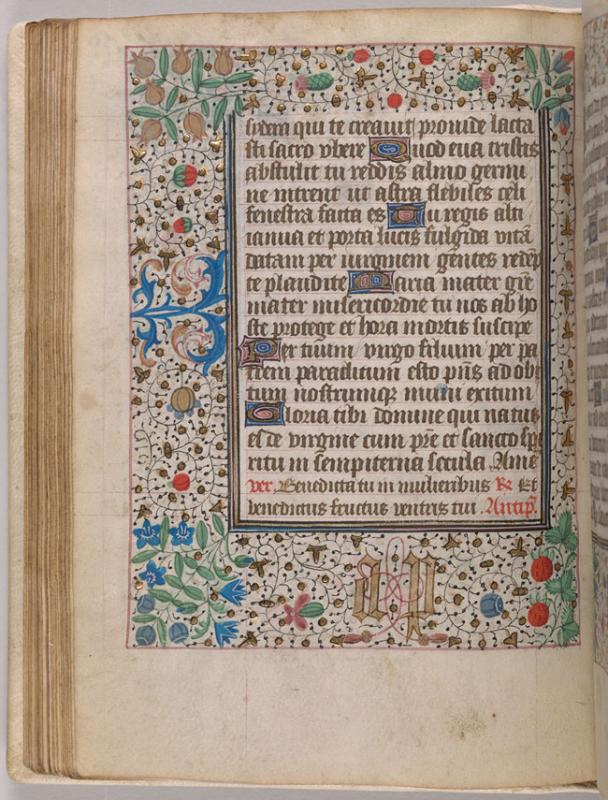 sydera qui te creauit prouide lacta
sti sacro vbere Quod eua tristis
abstulit tu reddis almo germi
ne intrent ut astra flebiles celi
fenestra facta es Tu regis alti
ianua et porta lucis fulgida vitā
datam per uirginem gentes redēp
te plaudite Maria mater grē
mater misericordie tu nos ab ho
ste protege et hora mortis suscipe
Per tuum virgo filium per pa
trem paraclitum esto pn̄s ad obi
tum nostrumqȝ exitum
Gloria tibi domine qui natus
es de virgine cum pr̄e et sancto spi
ritu in sempiterna secula Amē
ver. Benedicta tu in mulieribus R Et
benedictus fructus ventris tui. Antip̄.
a p